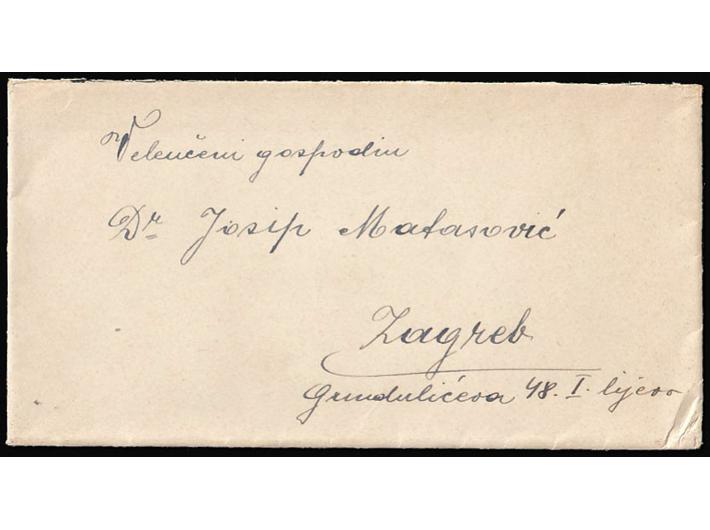 Veleučeni gospodin
Dr Josip Matasović
Zagreb
Gundulićeva 48. I. lijevo